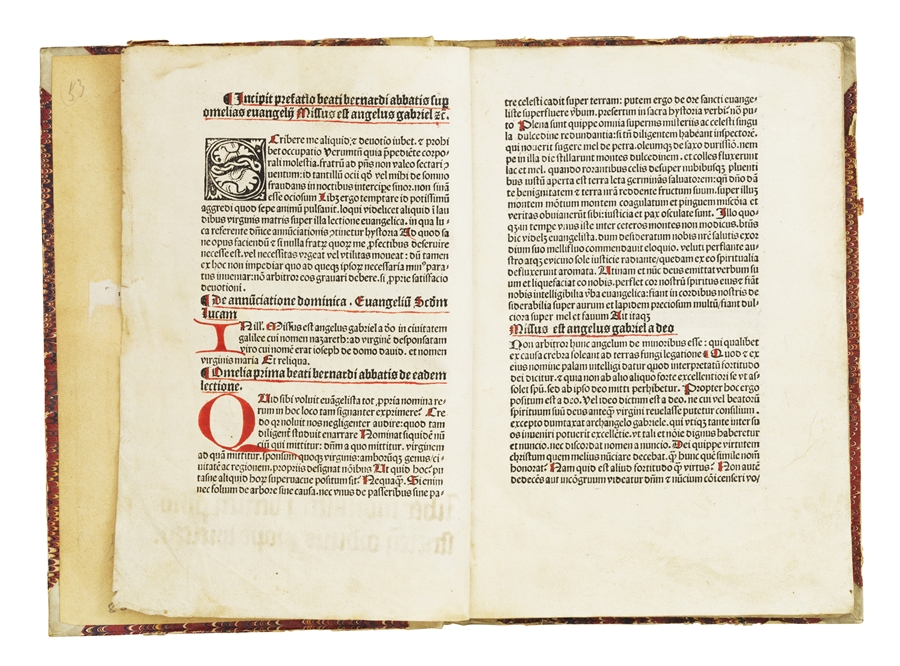 53
¶ Incipit prefatio beati bernardi abbatis sup
omelias euangelij Missus est angelus gabriel ⁊c̄.
Scribere me aliquid ⁊ deuotio iubet. ⁊ prohi
bet occupatio Verumtn̄ quia p̄pediēte corpo-
rali molestia. fratrū ad pn̄s non valeo sectari ɔ
uentum: id tantillū ocij qd̓ vel mihi de somno
fraudans in noctibus intercipe sino. non sinā
esse ociosum Libz ergo temptare id potissimū
aggredi quod sepe animū pulsauit. loqui videlicet aliquid i lau
dibus virginis matris super illa lectione euangelica. in qua lu-
ca referente dn̄ice annunciationis ɔtinetur hystoria Ad quod sa
ne opus faciendū ⁊ si nulla fratꝝ quoꝝ me ꝓfectibus deseruire
necesse est. vel necessitas vrgeat vel vtilitas moueat: dū tamen
ex hoc non impediar quo ad queqz ipsoꝝ necessaria min⁹ para-
tus inueniar: nō arbitror eos grauari debere. si ꝓprie satisfacio
deuotioni.
¶ De annūciatione dominica. Euangeliū Scdm
lucam
IN illˀ. Missus est angelus gabriel a dō in ciuitatem
galilee cui nomen nazareth: ad virginē desponsatam
viro cui nomē erat ioseph de domo dauid. et nomen
virginis maria Et reliqua.
¶ Omelia prima beati bernardi abbatis de eadem
lectione.
QUid sibi voluit euāgelista tot ꝓpria nomina re-
rum in hoc loco tam signanter exprimere? Cre
do qz noluit nos negligenter audire: quod tam
diligent̓ studuit enarrare Nominat siquidē nū
ciū qui mittitur. dn̄m a quo mittitur. virginem
ad quā mittitur. sponsum quoqz virginis: amborūqz genus/ ci-
uitatē ac regionem. proprijs designat nōibus Ut quid hoc: pu
tasne aliquid hoꝝ superuacue positum sit? Nequaqꝫ. Si enim
nec folium de arbore sine causa. nec vnus de passeribus sine pa-
tre celesti cadit super terram: putem ergo de ore sancti euange-
liste superfluere v̓bum. presertim in sacra hystoria verbi? nō pu-
to Plena sunt quippe omnia supernis misterijs ac celesti singu
la dulcedine redundantia: si tn̄ diligentem habeant inspectorē.
qui nouerit sugere mel de petra. oleumqz de saxo durissio. nem
pe in illa die stillarunt montes dulcedinem. et colles fluxerunt
lac et mel. quando rorantibus celis desuper nubibusqz pluenti
bus iustū aperta est terra leta germinās saluatorem: qn̄ dn̄o dā
te benignitatem ⁊ terra nr̄a reddente fructum suum. super illuz
montem mōtium montem coagulatum et pinguem misc̄dia et
veritas obuiauerūt sibi: iusticia et pax osculate sunt. Illo quo-
qz in tempe vnus iste inter ceteros montes non modicus. btūs
bic videlz euangelista. dum desideratum nobis nr̄e salutis exor
dium suo mellifluo commendauit eloquio. veluti perflante au-
stro atqz euicino sole iusticie radiante/ quedam ex eo spiritualia
defluxerunt aromata. Utinam et nūc deus emittat verbum su
um et liquefaciat eo nobis. perflet cor nostrū spiritus eius ⁊ fiāt
nobis intelligibilia v̓ba euangelica: fiant in cordibus nostris de
siderabilia super aurum et lapidem preciosum multū/ fiant dul-
ciora super mel et fauum Ait itaqz
Missus est angelus gabriel a deo
Non arbitror hunc angelum de minoribus esse: qui qualibet
ex causa crebra soleant ad terras fungi legatione ¶ Quod ⁊ ex
eius nomine palam intelligi datur quod interpretatū fortitudo
dei dicitur. ⁊ quia non ab alio aliquo forte excellentiori se vt as-
solet spū. sed ab ipso deo mitti perhibetur. Propter hoc ergo
positum est a deo. Vel ideo dictum est a deo. ne cui vel beatorū
spirituum suū deus anteqꝫ virgini reuelasse putetur consilium.
excepto dumtaxat archangelo gabriele. qui vtiqz tante inter su
os inueniri potuerit excellētie. vt tali et nōie dignus haberetur
et nuncio. nec discordat nomen a nuncio. Dei quippe virtutem
christum quem melius nūciare decebat. qꝫ hunc que simile nom̄
honorat? Nam quid est aliud fortitudo qꝫ virtus? Non autē
dedecēs aut incōgruum videatur dn̄m ⁊ nūcium cōi censeri vo/